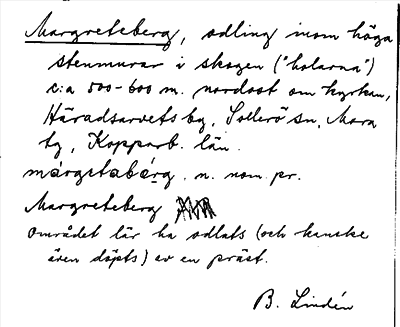 Margreteberg, odling inom höga
stenmurar i skogen ("holarna")
c:a 500-600 m. nordost om kyrkan,
Häradsarvets by, Sollerö sn, Mora
tg, Kopparb. län.
màrgrətabárg. n. nom. pr.
Margreteberg
området lär ha odlats (och kanske
även döpts) av en präst.
B. Lindén